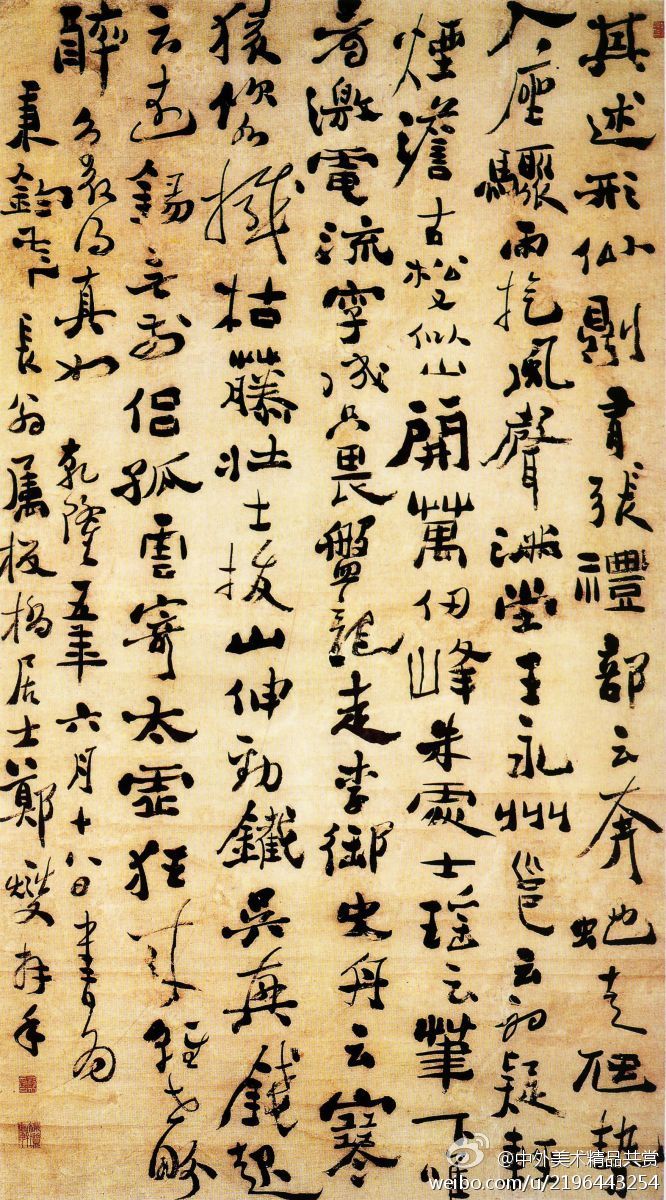 其述形似則有張禮部云奔虵走虺勢
入座驟雨旋風聲滿堂王永州邕云初疑輕
煙澹古松又似山開萬仞峰朱處士瑤云筆下唯
看激電流字成只畏盤龍走李御史舟云寒
猿飲水撼枯藤壯士拔山伸勁鐵吳興錢起
云遠錫無前侶孤雲寄太虛狂來輕世界
醉裏得真如 乾隆五年六月十八日書為
秉鈞長翁屬板橋居士鄭燮
@中外美术精品共赏
weibo.com/u/2196443254